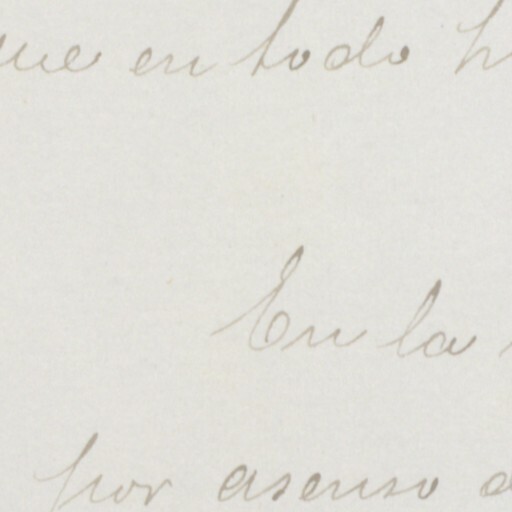 que en todo
En la
por asenso